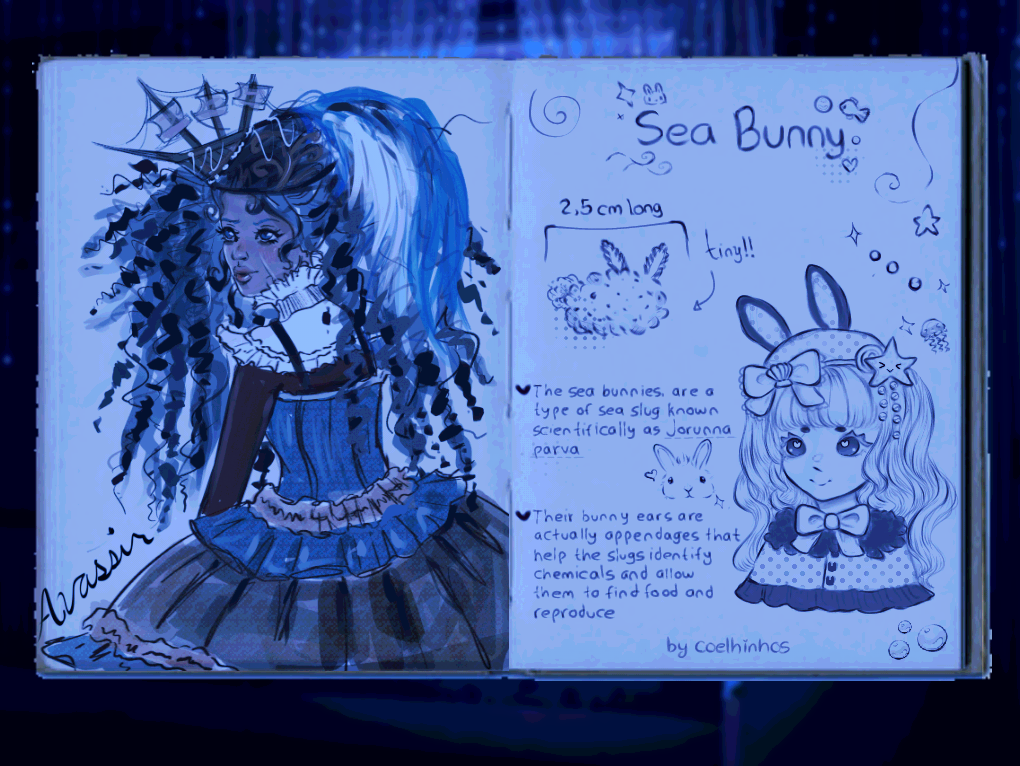 Sea Bunny
2,5 cm long
tiny!!
The sea bunnies, are a
type of sea slug known
scientifically as Jorunna
parva
Their bunny ears are
actually appendages that
help the slugs identify
chemicals and allow
them to find food and
reproduce
by coelhinhcs